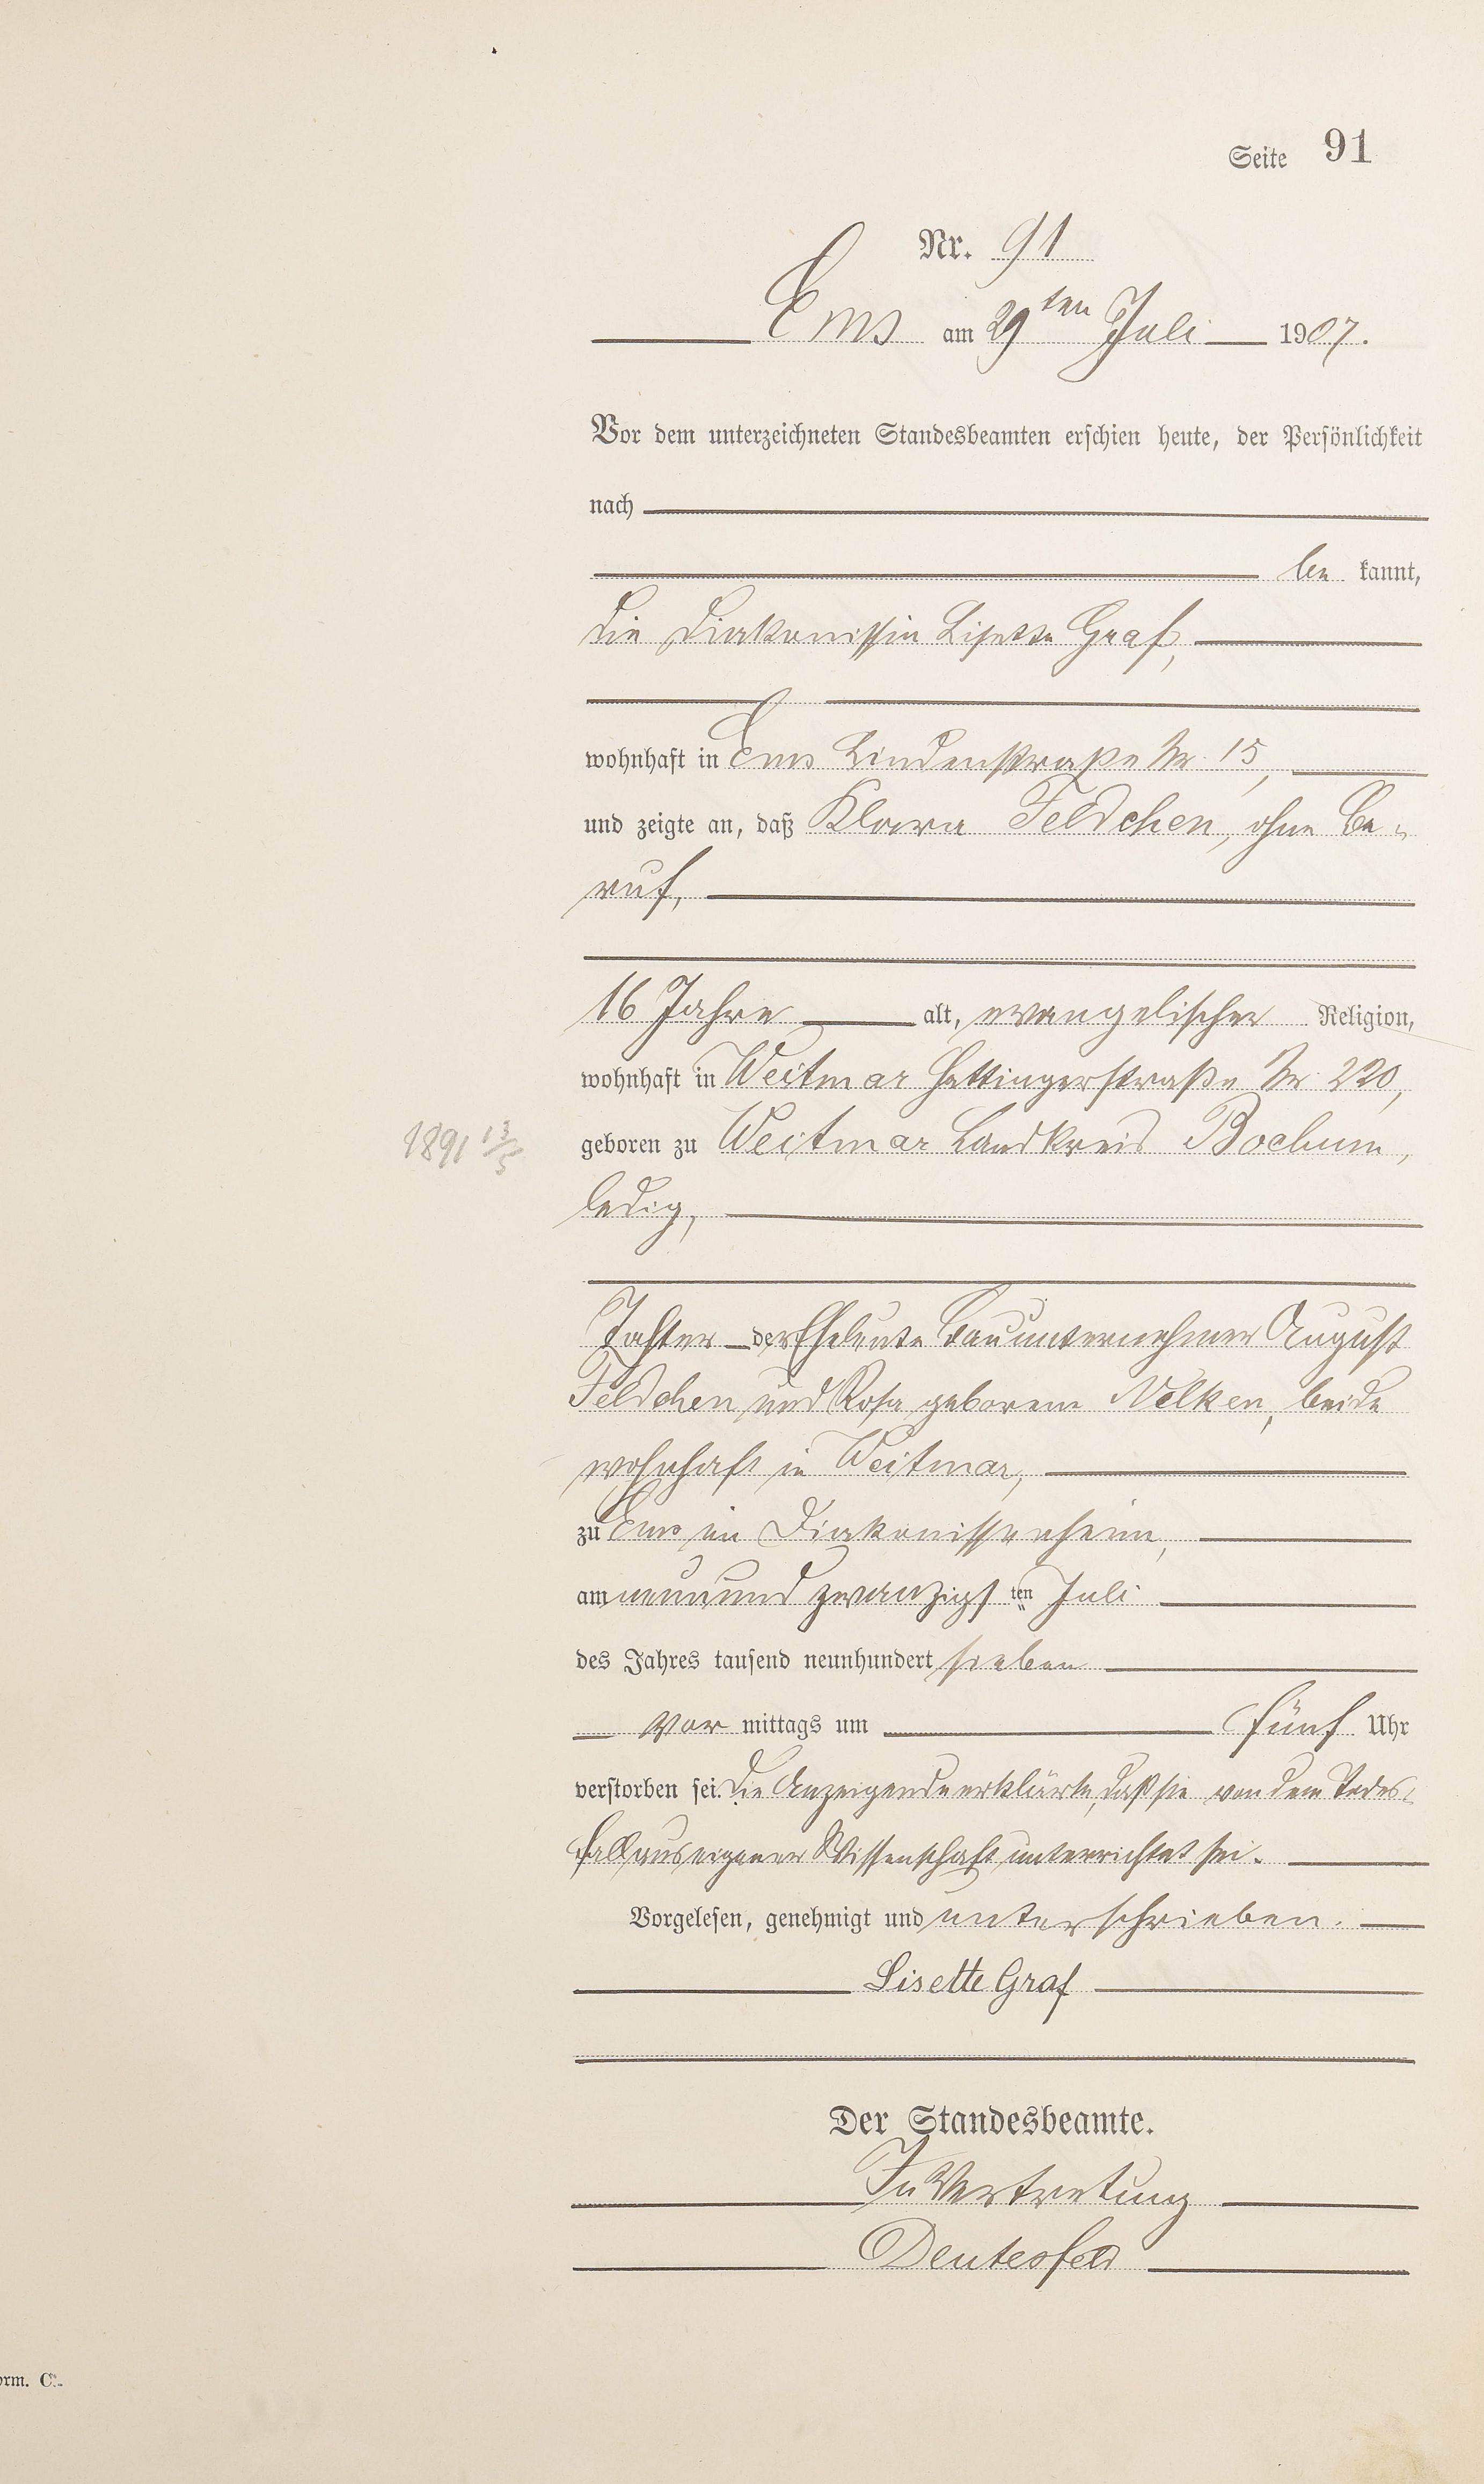 Seite 91
Nr. 91
Ems am 29ten Juli 1907.
Vor dem unterzeichneten Standesbeamten erschien heute, der Persönlichkeit
nach
be kannt,
die Diakonissin Lisette Graf,
wohnhaft in Ems Lindenstraße Nr. 15,
und zeigte an, daß Klara Feldchen, ohne Be-
ruf,
16 Jahre alt, evangelischer Religion,
wohnhaft in Weitmar Hattingerstraße Nr. 220,
1891 13/5 geboren zu Weitmar Landkreis Bochum,
ledig,
Tochter der Eheleute Bauunternehmer August
Feldchen und Rosa geborene Nelken, beide
wohnhaft in Weitmar,
zu Ems im Diakonissenheim,
am neunundzwanzigsten Juli
des Jahres tausend neunhundert sieben
vor mittags um fünf Uhr
verstorben sei. Die Anzeigende erklärte, daß sie von dem Todes-
fall aus eigener Wissenschaft unterrichtet sei.
Vorgelesen, genehmigt und unterschrieben.
Lisette Graf
Der Standesbeamte.
In Vertretung
Deutesfeld
orm. C.